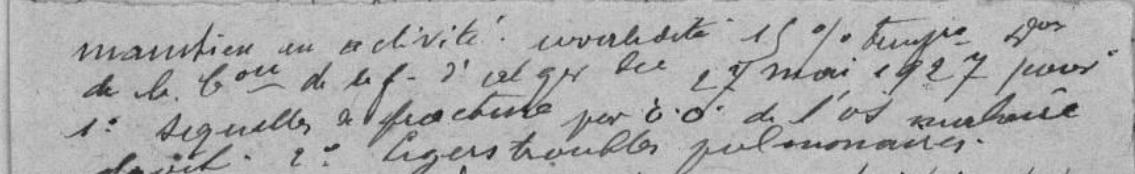 maintien en activité. invalidité 15 % temp^re Don
de la C^on de réf. d'Alger du 27 mai 1927 pour
1° séquelles de fracture par de l'os malaire
droit. 2° légers troubles pulmonaires.